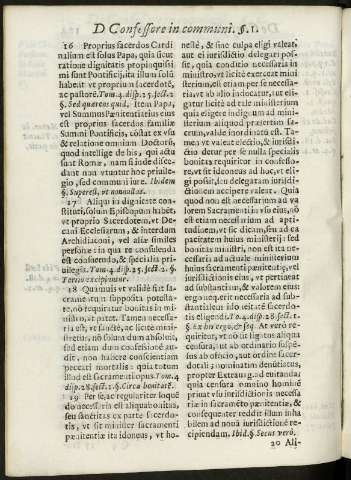 D Confessore in communi. §. 1.
16 Proprius sacerdos Cardi
nalium est solus Papa, quia sicut
ratione dignitatis propinquissi
mi sunt Pontificij, ita illum solũ
habẽt vt proprium sacerdotẽ,
ac pastorẽ. Tom. 4. disp. 25. sect. 2.
§. Sed quæres quid. Item Papa,
vel Summus Pœnitentiarius eius
est proprius sacerdos familiæ
Summi Pontificis, cõstat ex vsu
& relatione omnium Doctorũ,
quod intellige de his, qui actu
sunt Romæ, nam si inde disce-
dant non vtuntur hoc priuile-
gio, sed communi iure. Ibidem
§. Superest, vt omnes tot.
17 Aliqui in dignitate con-
stituti, solum Episcopum habẽt,
vt proprio Sacerdotem, vt De-
cani Ecclesiarum, & interdum
Archidiaconi, vel aliæ similes
personæ: in qua re consulenda
est consuetudo, & specialia pri-
uilegia. Tom. 4. disp. 25. sect. 2. §.
Tertio excipiuntur.
18 Quamuis vt validè fiat sa-
cramentum supposita potesta-
te, nõ requiratur bonitas in mi-
nistro, vt patet. Tamen necessa-
ria est, vt sanctè, ac licitè mini-
stretur, nõ solum dum absoluit,
sed etiam dum confessionẽ au-
dit, non habere conscientiam
peccati mortalis: quia totum
illud est Sacramentí opus Tom. 4
disp. 28. sect. 1. §. Circa bonitatẽ.
19 Per se, ac regulariter loquẽ
do necessaria est aliqua bonitas,
seu sanctitas ordinis, & vt sit
minister sacramenti
pœnitentiæ ita idoneus, vt ho-
nestè, & sine culpa eligi valeat,
aut ei iurisdictio delegari pos-
sit, quia conditio necessaria in
ministro, vt licitè exerceat mini
sterium, est etiam necessaria, vt
aut ab alio iurisdictionem, vt eli-
gatur, licitè ad ministerium,
quia eligere indignum ad mini-
sterium aliquod præsertim sa-
crum, valde inordinatũ est. Ta-
men vt valeat electio, & iurisdi-
ctio detur per se nulla specialis
bonitas requiritur in confesso-
re, vt sit idoneus ad hoc, vt eli-
gi possit, seu delegatam iurisdi-
ctionem accipere valeat. Quia
quod non est necessarium ad va
lorem Sacramenti in suo esse, nõ
est etiam necessarium ad apti-
tudinem, vt sic dicam, seu ad ca
pacitatem huius ministerij: sed
bonitas ministri, non est ita ne-
cessaria ad actuale ministerium
huius sacramenti pœnitentiæ, vel
iurisdictionis eius, vt pertineat
ad substantiam, & valorem eius
ergo neq. erit necessaria ad sub-
stantialem idoneitatẽ sacerdotis
eligendi, To. 4. disp. 28. sect. 1.
§. ex his ergo, & seq. At verò re-
quiritur, vt nõ sit ligatus aliqua
censura, si ab ordinario suspẽ-
sus ab officio, aut ordine sacer-
dotali: nominatim denũtiatus,
propter Extraug. ad euitanda:
quia censura omnino hominẽ
priuat vsu iurisdictionis necessa
riæ in sacramẽto pœnitẽtiæ, &
consequenter reddit illum inha
bilem ad nouã iurisdictionẽ re-
cipiendam. Ibid. §. Secus verò.
20 Ali-